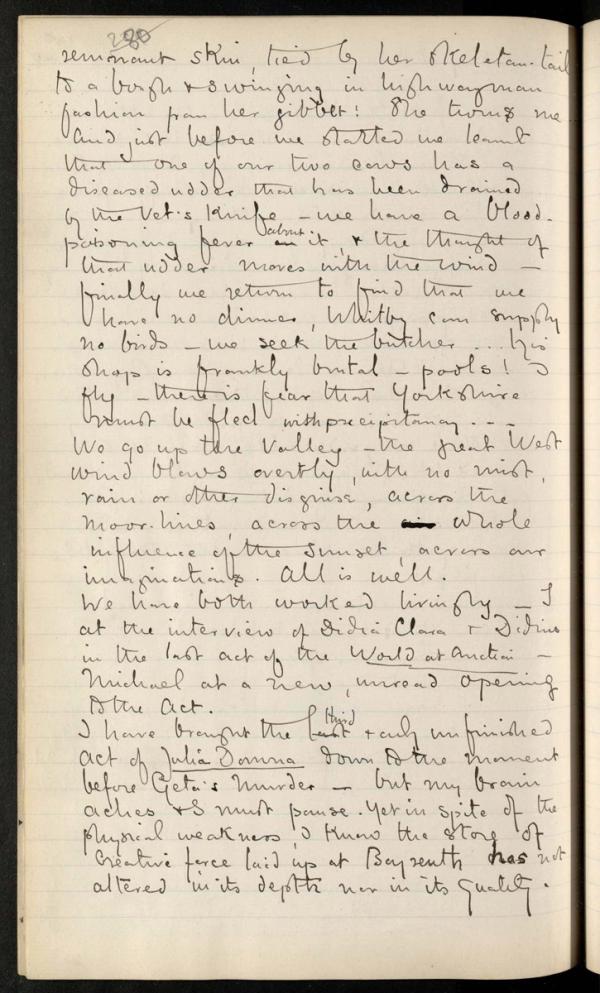 280
remnant skin, tied by her skeleton-tail
to a bough & swinging in highwayman
fashion from her gibbet! She turns me
And just before we started we learnt
that one of our two cows has a
diseased udder that has been drained
by the Vet's Knife – we have a blood-
poisoning fever about it, & the thought of
that udder moves with the wind –
finally we return to find that we
have no dinner, Whitby can supply
no birds – we seek the butcher ... his
shop is frankly brutal – pools! I
fly – there is fear that Yorkshire
must be fled with precipitancy ...
We go up the Valley – the great West
wind blows overtly, with no mist,
rain or other disguise, across the
moor-lines, across the whole
influence of the sunset, across our
imaginations. All is well.
We have both worked livingly – I
at the interview of Didia Clara & Didius
in the last act of the World at Auction –
Michael at a new, unread opening
to the Act.
I have brought the last Third & only unfinished
act of Julia Domna down to the moment
before Geta's Murder – but my brain
aches & I must pause. Yet in spite of the
physical weakness, I know the store of
creative force laid up at Bayreuth has not
altered in its depth nor in its quality.